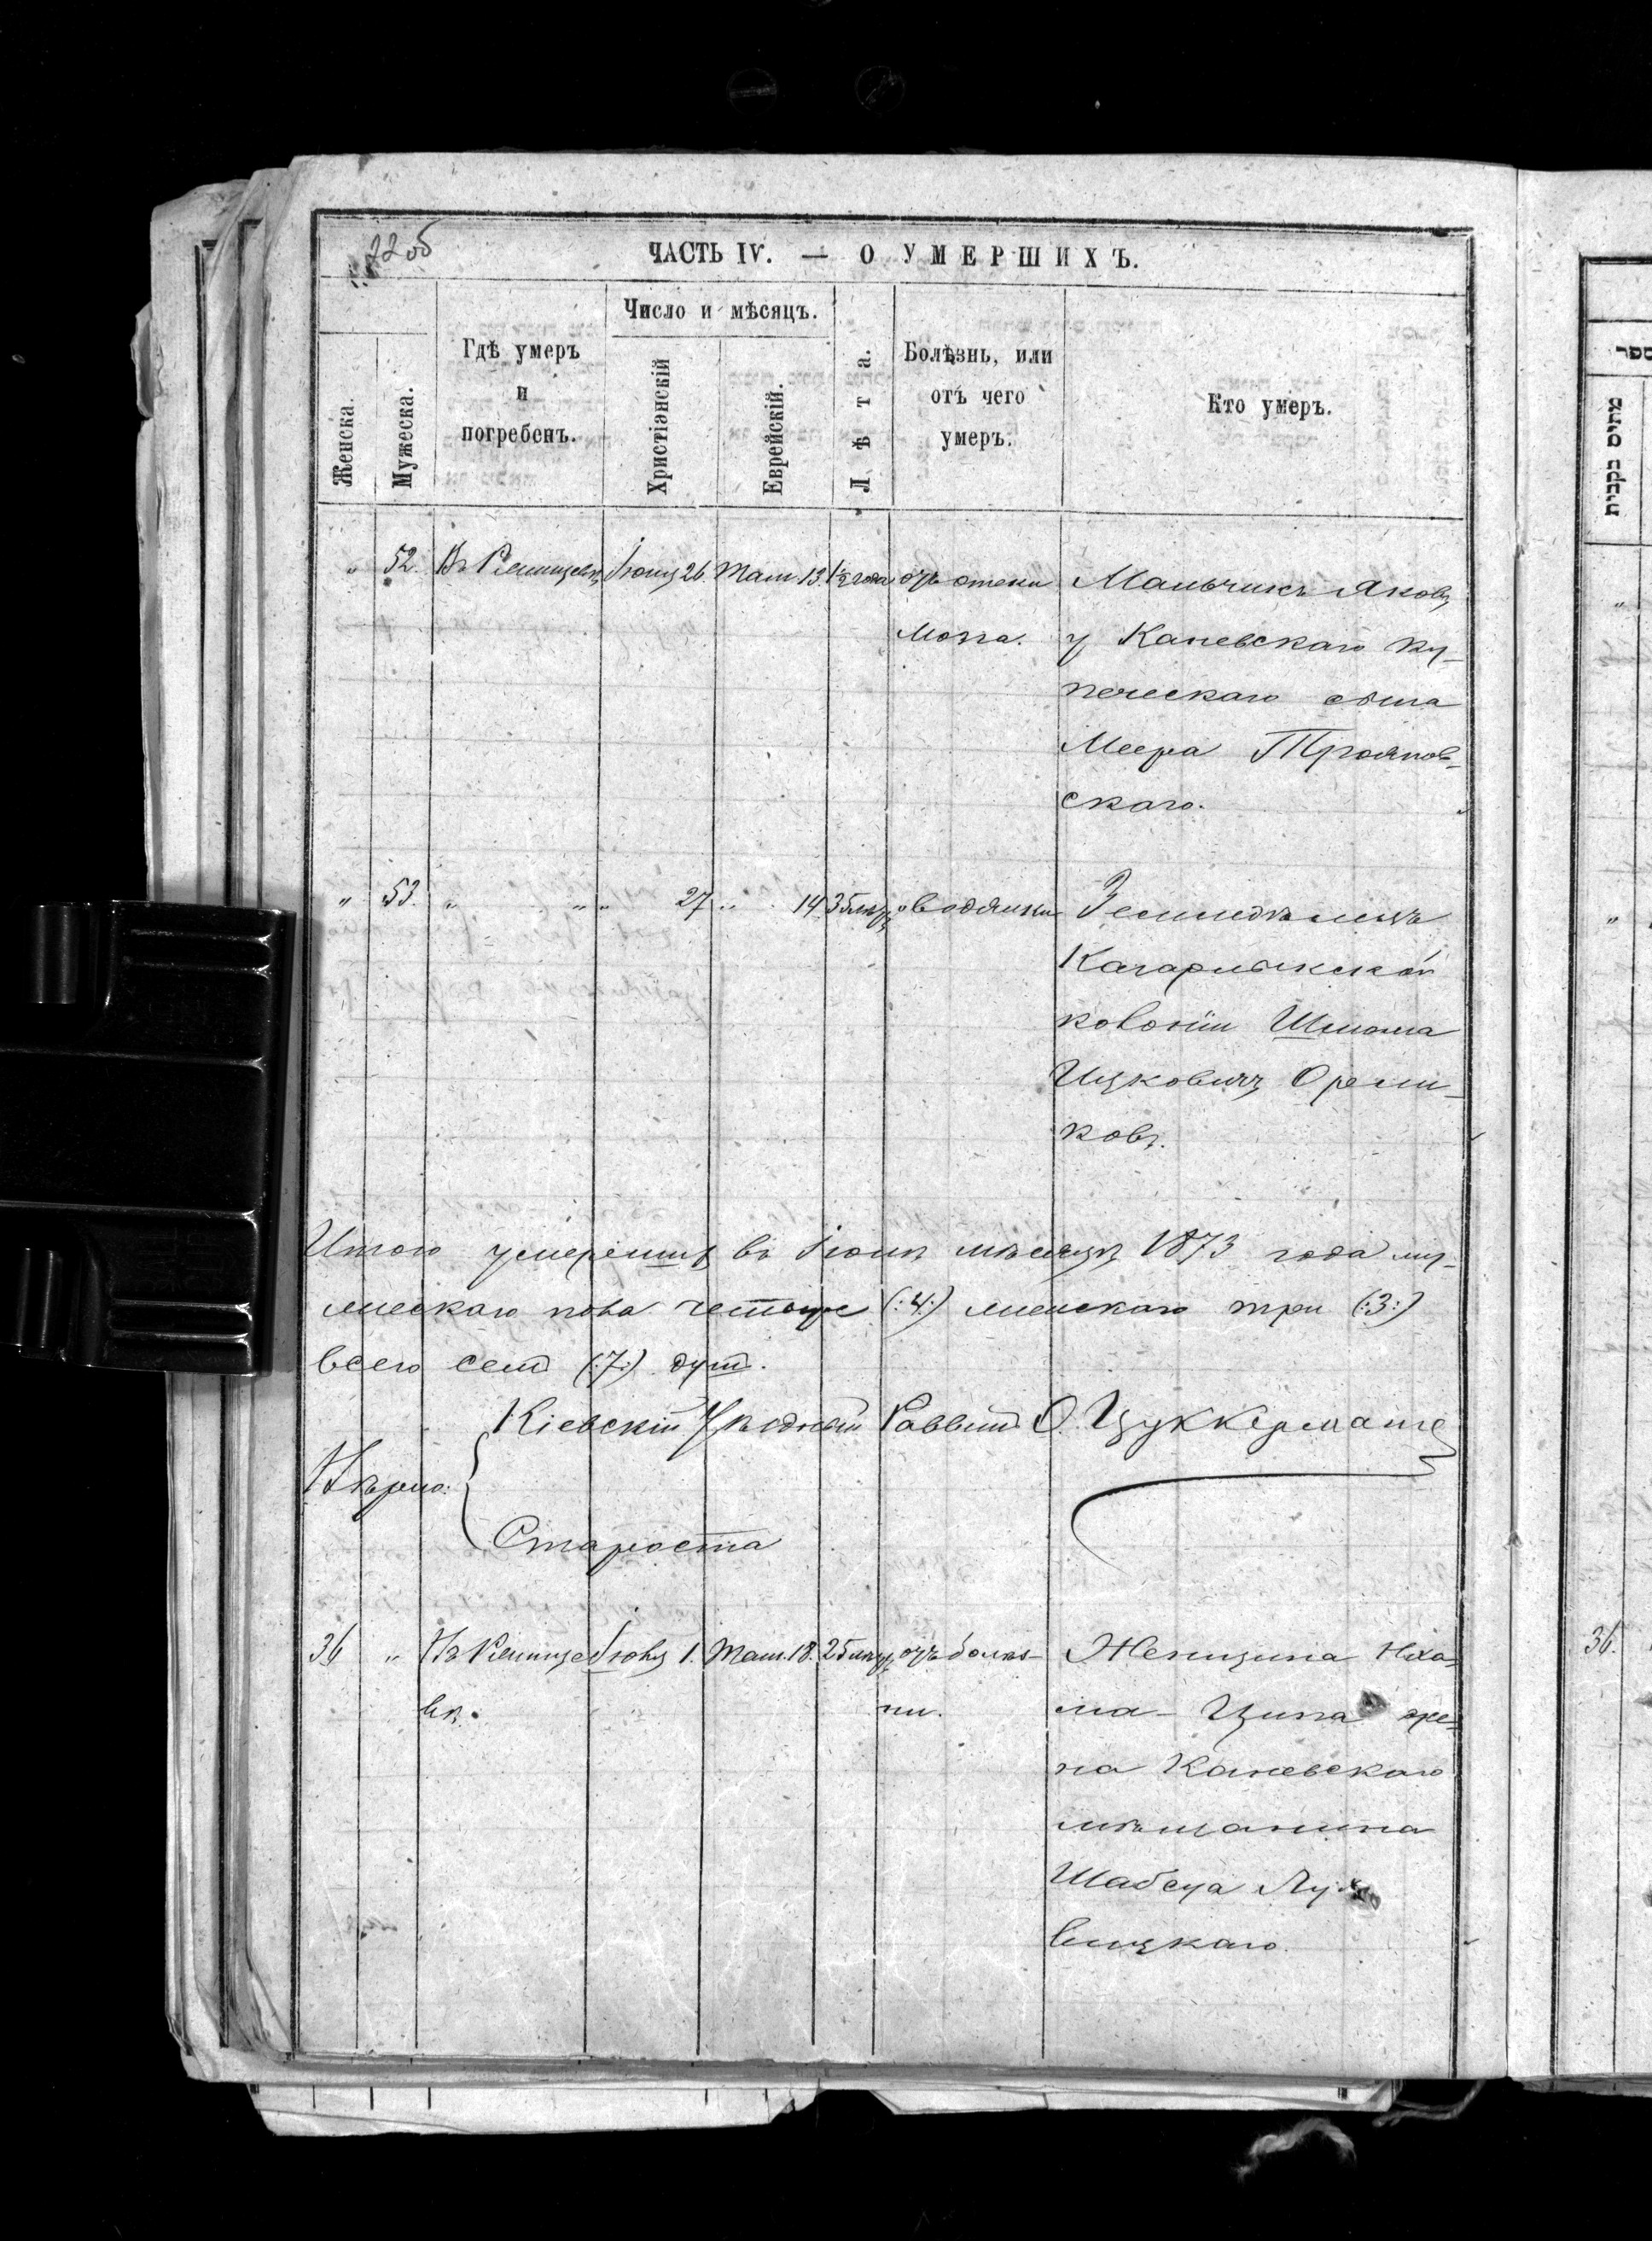 22об
ЧАСТЬ IV. — О УМЕРШИХЪ.
Женска.
Мужеска.
Гдѣ умеръ
и
погребенъ.
Число и мѣсяцъ.
Христіанскій
Еврейскій.
Лѣта.
Болѣзнь, или
отъ чего
умеръ.
Кто умеръ.
" 52. Въ Ржищевѣ Іюня 26. Там. 13. 1½ года отъ отека Мальчикъ Яковъ
мозга. у Каневскаго ку-
печескаго сына
Меера Трояков-
скаго.
" 53. " " " 27 " 14 35 лѣтъ водянки Земледѣлецъ
Кагарлыкской
колоніи Шлома
Ицковичъ Ореш-
ковъ.
Итого умершихъ въ Іюнѣ мѣсяцѣ 1873 года му-
жескаго пола четыре (:4:) женскаго три (:3:)
всего семь (:7:) душъ.
Кіевскій Уѣздный Раввинъ О. Цуккерманъ
Вѣрно:
Староста
36 " Въ Ржище Іюля 1. Там. 18. 25 лѣтъ отъ болѣз- Женщина Неха-
вѣ. ни. ма-Ципа же-
на Каневскаго
мѣщанина
Шабсуа
вицкаго.
מתים
נקבות
36.